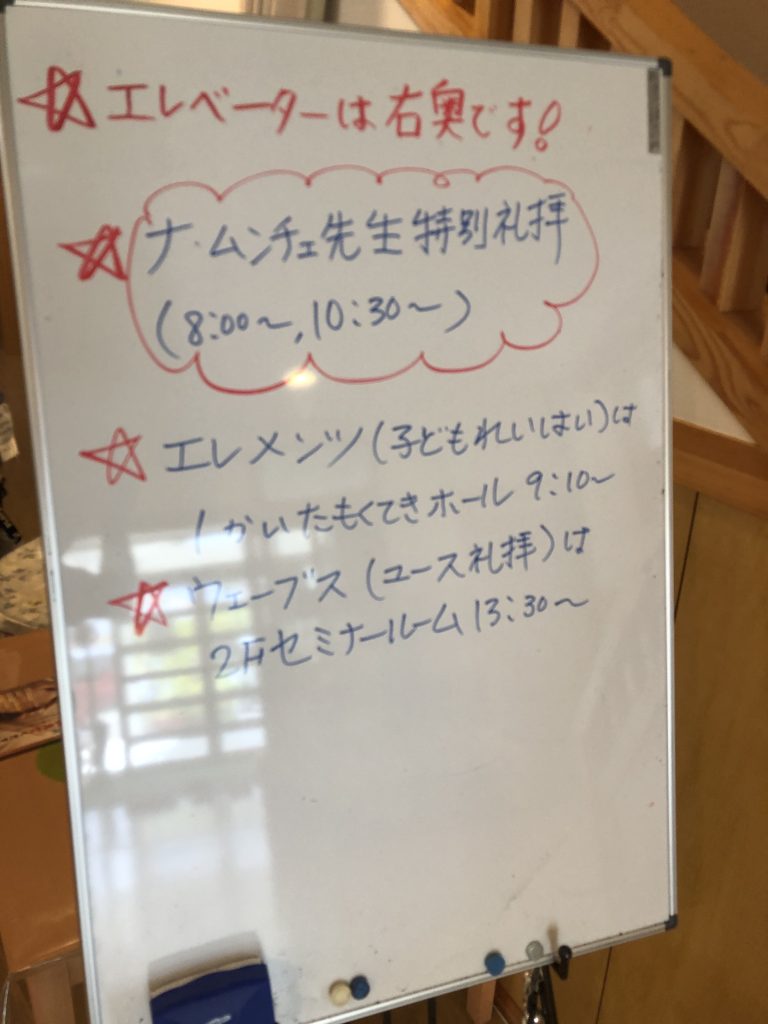 ☆エレベーターは右奥です!
☆ナ・ムンチェ先生特別礼拝
(8:00〜,10:30〜)
☆エレメンツ(子どもれいはい)は
1かいたもくてきホール 9:10〜
☆ウェーブス(ユース礼拝)は
2Fセミナールーム 13:30〜